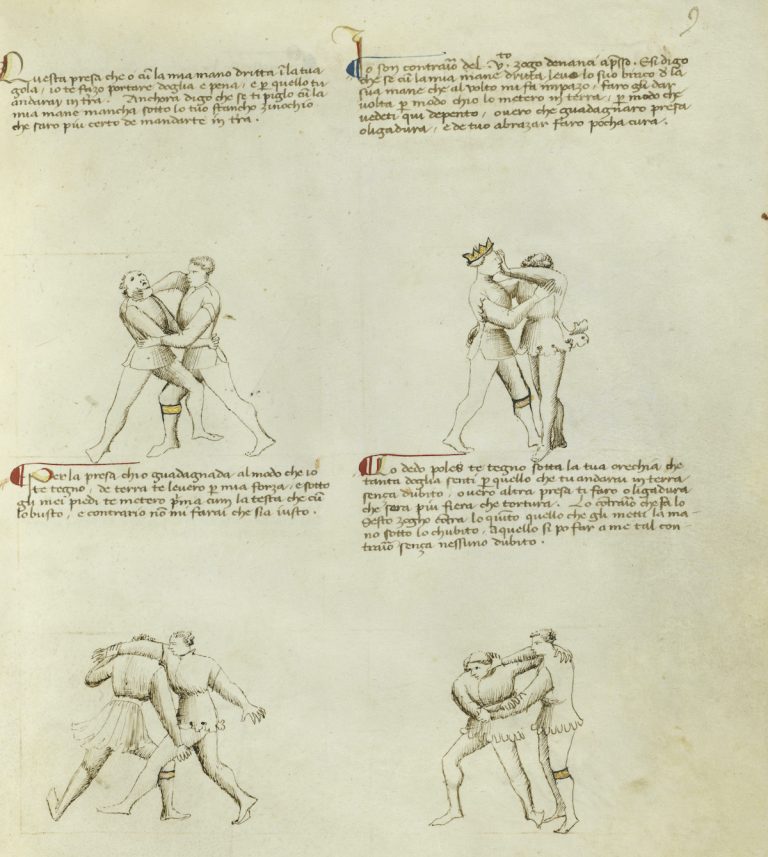 9
Questa presa che o cū la mia mano dritta ī la tua
gola, io te fazo portare doglia e pena, e p quello tu
andarai in tra. Anchora digo che se ti piglo cū la
mia mane mancha sotto lo tuo stancho zinochio
che saro più certo de mandarte in tra.
Io son contrario del .V.to zogo denanci apsso. E si digo
che se cū la mia mane dritta levo lo suo brazo de la
sua mane che al volto mi fa impazo, faro gli dar
volta p modo chio lo metero in terra, p modo che
vedeti qui depento, overo che guadagnaro presa o
ligadura, e de tuo abrazar faro pocha cura.
Per la presa chio guadagnada al modo che io
te tegno, de terra te levero p mia forza, e sotto
gli mei piedi te metero pma cum la testa che cū
lo busto, e contrario nō mi farai che sia iusto.
Lo dedo polese te tegno sotta la tua orechia che
tanta doglia senti p quello che tu andarai in terra
sença dubito, overo altra presa ti faro o ligadura
che sara più fiera che tortura. Lo contrario che fa lo
sesto zogho contra lo quīto quello che gli mette la ma-
no sotto lo chubito, aquello si po far a me tal con-
trario sença nessuno dubito.